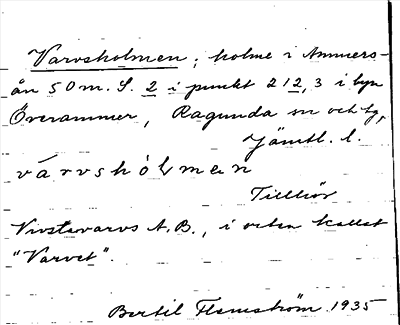 Varvsholmen, holme i Ammers-
ån 50 m. S. 2 i punkt 212,3 i byn
Överammer, Ragunda sn och tg,
Jämtl. l.
varvshólmen
Tillhör
Vivstavarvs A.B., i orten kallat
"Varvet".
Bertil Flemström 1935